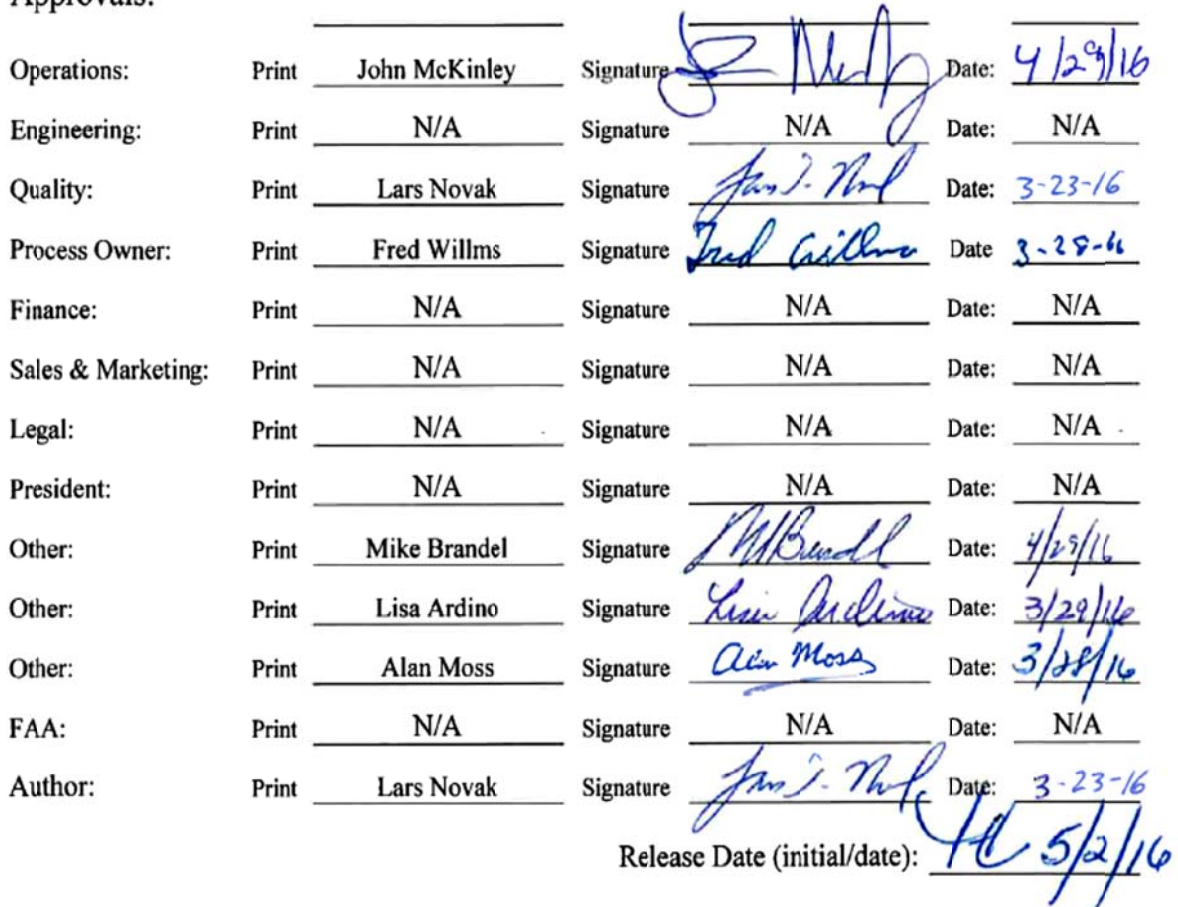 Approvals:
Operations: Print John McKinley Signature Date: 4/29/16
Engineering: Print N/A Signature N/A Date: N/A
Quality: Print Lars Novak Signature Date: 3-23-16
Process Owner: Print Fred Willms Signature Fred Willms Date 3-28-16
Finance: Print N/A Signature N/A Date: N/A
Sales & Marketing: Print N/A Signature N/A Date: N/A
Legal: Print N/A Signature N/A Date: N/A
President: Print N/A Signature N/A Date: N/A
Other: Print Mike Brandel Signature MBrandel Date: 4/29/16
Other: Print Lisa Ardino Signature Lisa Ardino Date: 3/29/16
Other: Print Alan Moss Signature Alan Moss Date: 3/28/16
FAA: Print N/A Signature N/A Date: N/A
Author: Print Lars Novak Signature Date: 3-23-16
Release Date (initial/date): 5/2/16